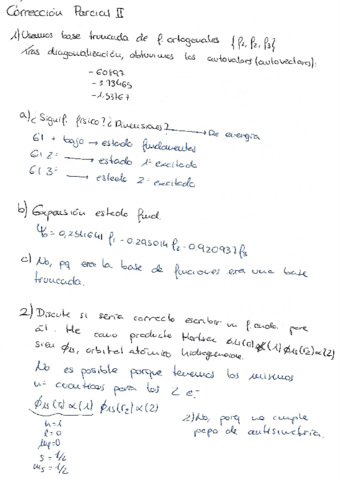 Corrección Parcial II
1) Usamos base truncada de f. ortogonales {f₁, f₂, f₃}
Tras diagonalización, obtuvimos los autovalores (autovectores):
-3'73465
-1'53767
a) ¿Signif. físico? ¿Dimensiones? → De energía
El + bajo → estado fundamental
El 2º → estado 1º excitado
El 3º → estado 2º excitado
b) Expansión estado fund.
Ψ₀ = 0,254641 f₁ - 0,295014 f₂ - 0,920937 f₃
c) No, pq era la base de funciones era una base
truncada.
2) Discute si sería correcto escribir un f. onda para
át. He como producto Hartree ϕ₁ₛ(r₁)α(1) ϕ₁ₛ(r₂)α(2)
sien ϕ₁ₛ, orbital atómico hidrogenoide.
No es posible porque tenemos los mismos
nº cuánticos para los 2 e⁻.
ϕ₁ₛ(r₁)α(1) ϕ₁ₛ(r₂)α(2)
2) No, porq no cumple
n=1
ppo de antisimetría.
l=0
mₗ=0
s=1/2
mₛ=1/2